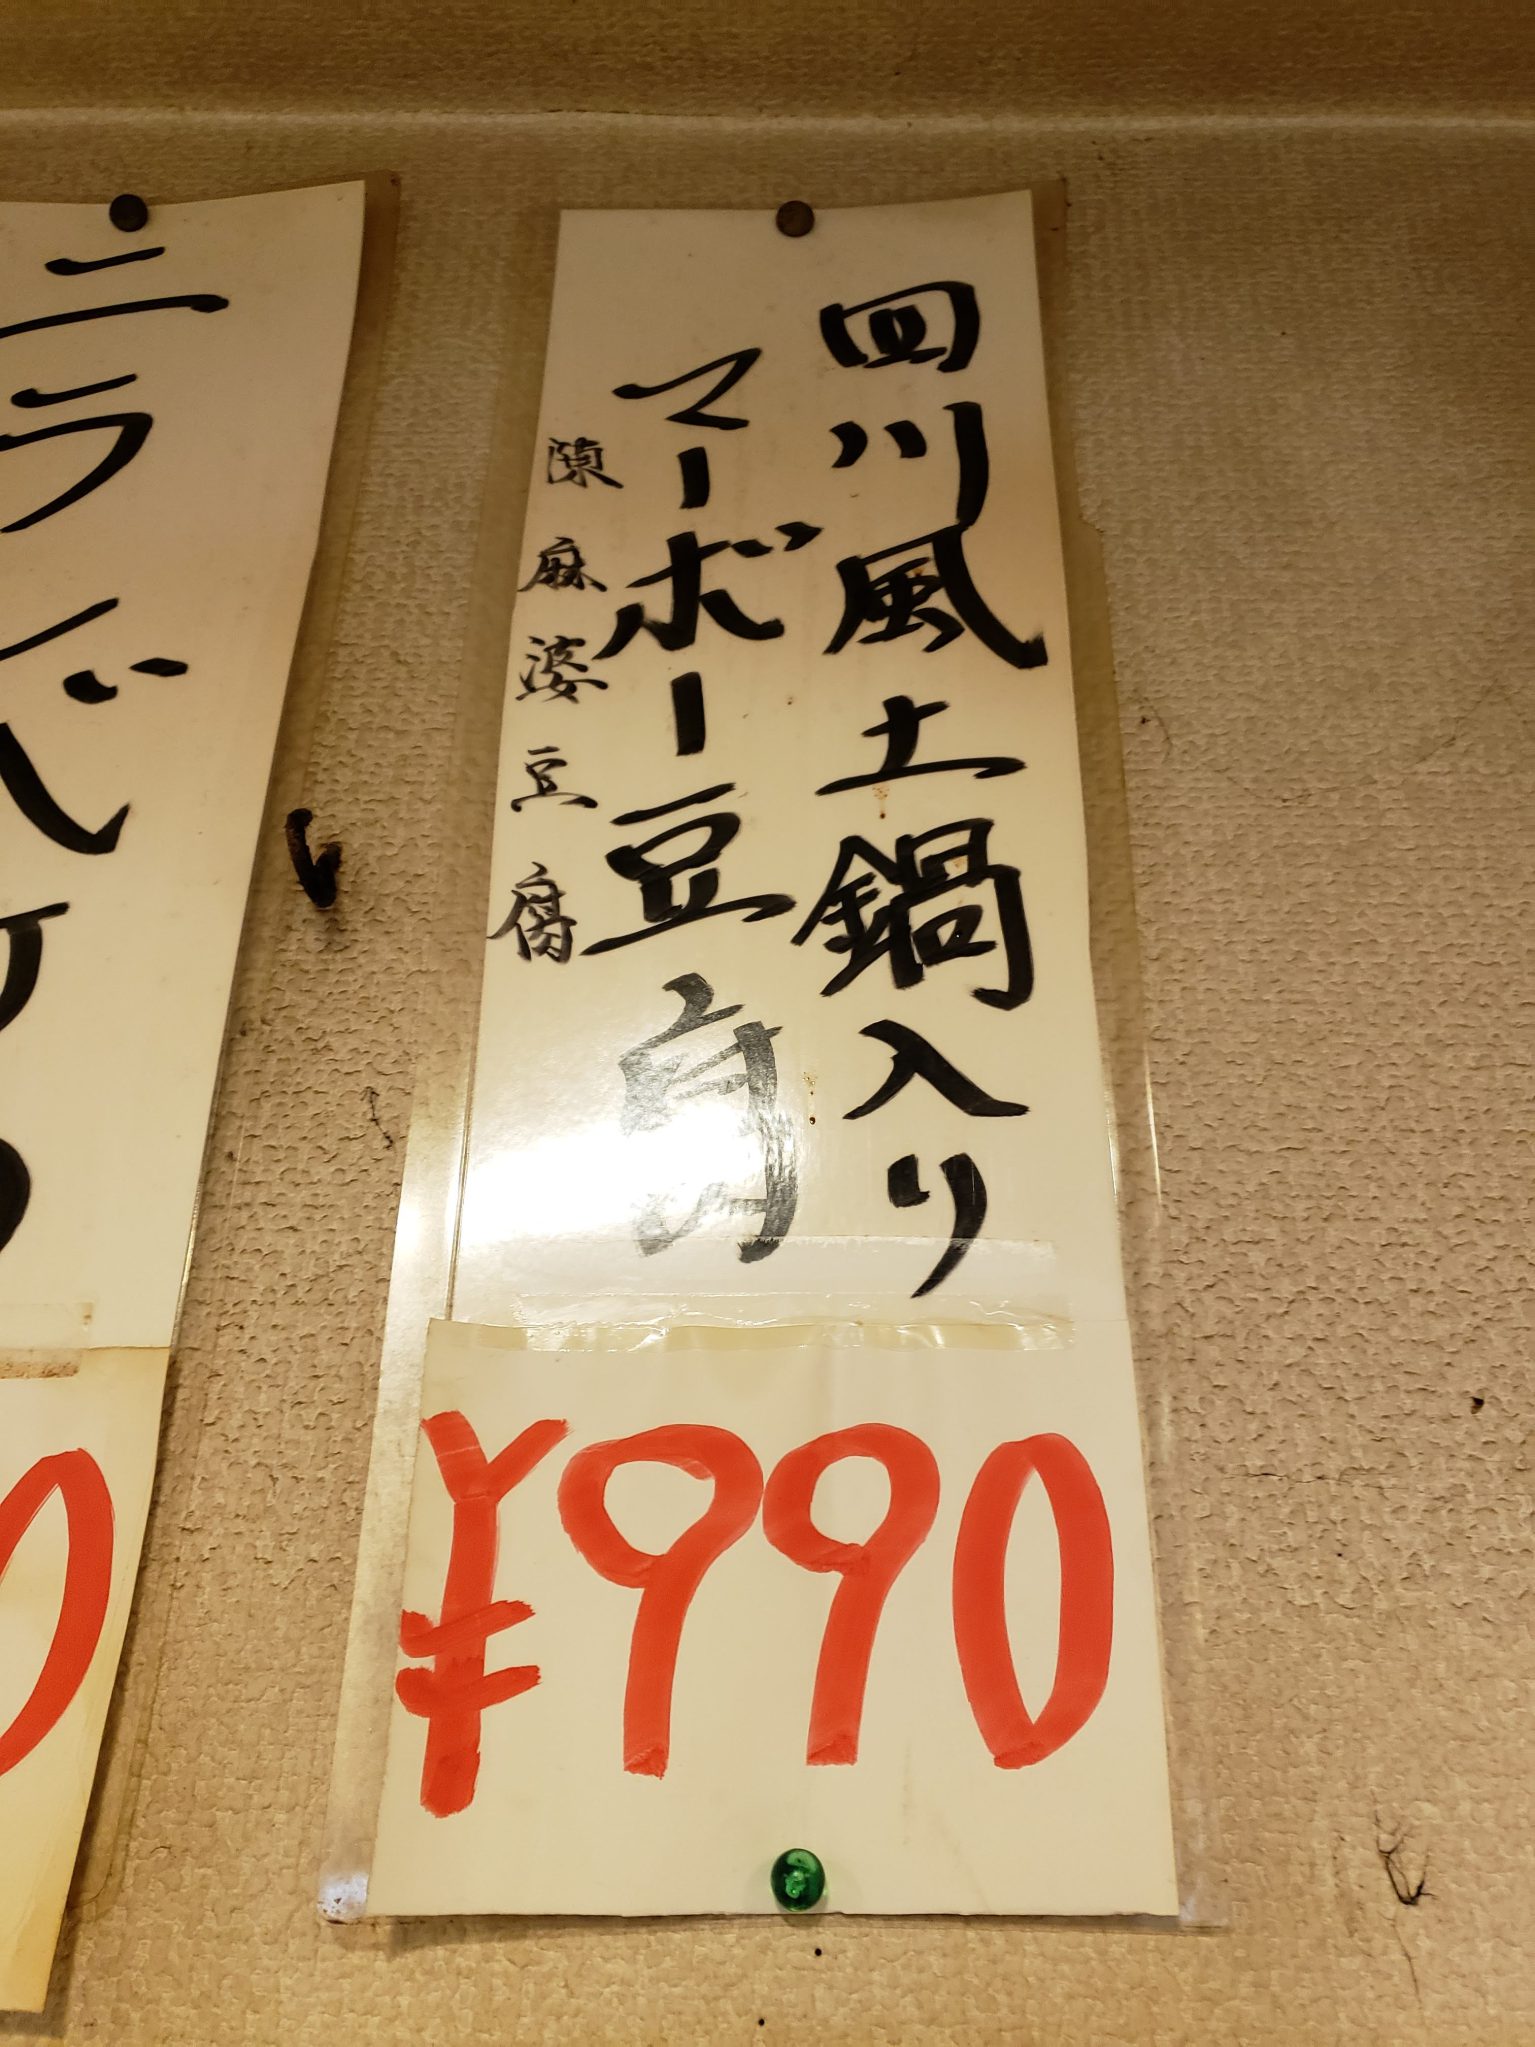 四川風土鍋入り
マーボー豆腐
陳麻婆豆腐
¥990
ニラ
0